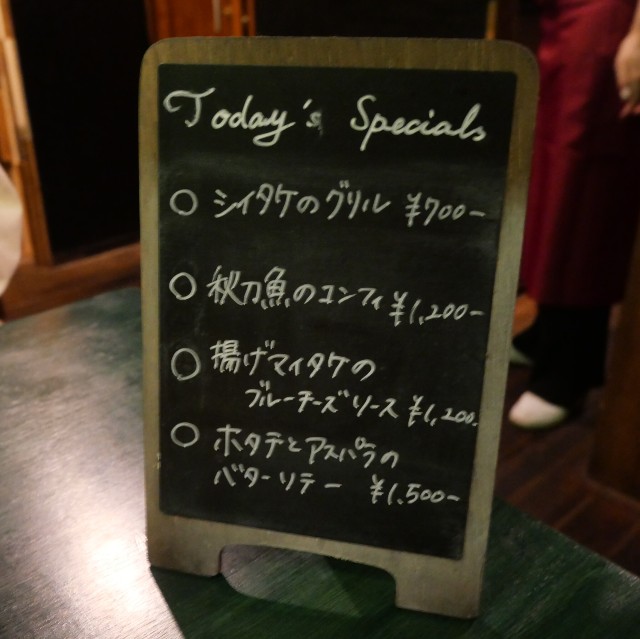 Today's Specials
○ シイタケのグリル ¥700-
○ 秋刀魚のコンフィ ¥1,200-
○ 揚げマイタケの
ブルーチーズソース ¥1,200.
○ ホタテとアスパラの
バターソテー ¥1,500-